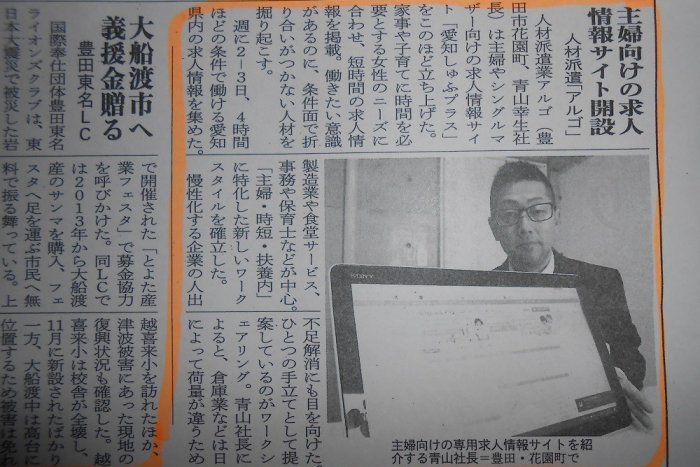 主婦向けの求人
情報サイト開設
人材派遣「アルゴ」
人材派遣業アルゴ（豊
田市花園町、青山幸生社
長）は主婦やシングルマ
ザー向けの求人情報サイ
ト「愛知しゅふプラス」
をこのほど立ち上げた。
家事や子育てに時間を必
要とする女性のニーズに
合わせ、短時間の求人情
報を掲載。働きたい意識
があるのに、条件面で折
り合いがつかない人材を
掘り起こす。
週に2－3日、4時間
ほどの条件で働ける愛知
県内の求人情報を集めた。
製造業や食堂サービス、
事務や保育士などが中心。
「主婦・時短・扶養内」
に特化した新しいワーク
スタイルを確立した。
慢性化する企業の人出
不足解消にも目を向けた。
ひとつの手立てとして提
案しているのがワークシ
ェアリング。青山社長に
よると、倉庫業などは日
によって荷量が違うため
SONY
主婦向けの専用求人情報サイトを紹
介する青山社長＝豊田・花園町で
大船渡市へ
義援金贈る
豊田東名LC
国際奉仕団体豊田東名
ライオンズクラブは、東
日本大震災で被災した岩
で開催された「とよた産
業フェスタ」で募金協力
を呼びかけた。同LCで
は2013年から大船渡
産のサンマを購入、フェ
スタへ足を運ぶ市民へ無
料で振る舞っている。上
越喜来小を訪れたほか、
津波被害にあった現地の
復興状況も確認した。越
喜来小は校舎が全壊し、
11月に新設されたばかり
一方、大船渡中は高台に
位置するため被害は免れ